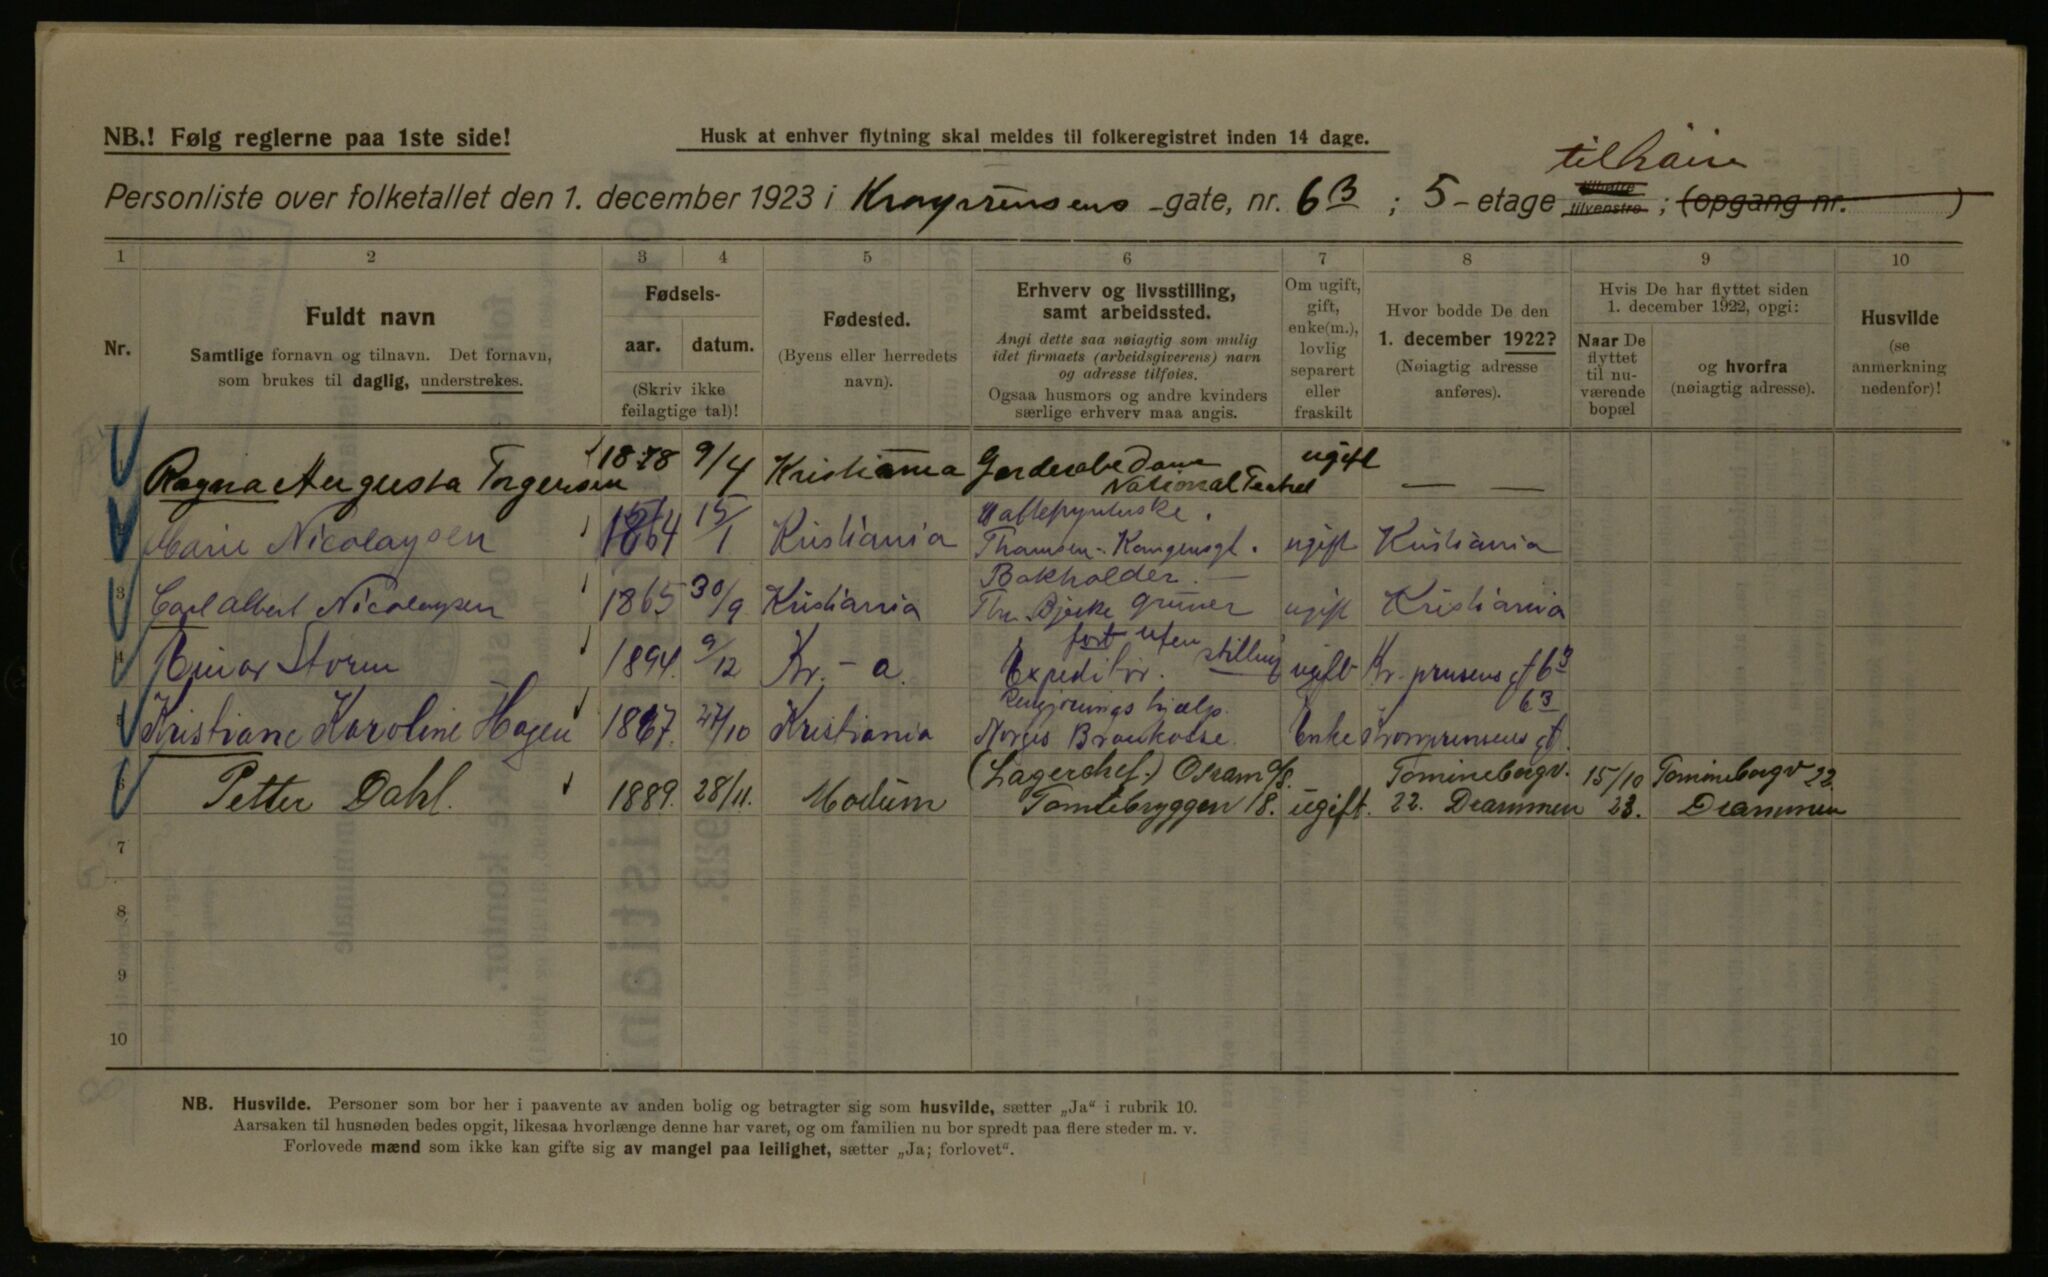 NB.! Følg reglerne paa 1ste side!
Husk at enhver flytning skal meldes til folkeregistret inden 14 dage.
Personliste over folketallet den 1. december 1923 i Kronprinsens -gate, nr. 6B ; 5 - etage tilhøire tilvenstre ; (opgang nr. )
1 2 3 4 5 6 7 8 9 10
Nr.
Fuldt navn
Samtlige fornavn og tilnavn. Det fornavn,
som brukes til daglig, understrekes.
Fødsels-
aar. datum.
(Skriv ikke
feilagtige tal)!
Fødested.
(Byens eller herredets
navn).
Erhverv og livsstilling,
samt arbeidssted.
Angi dette saa nøiagtig som mulig
idet firmaets (arbeidsgiverens) navn
og adresse tilføies.
Ogsaa husmors og andre kvinders
særlige erhverv maa angis.
Om ugift,
gift,
enke(m.),
lovlig
separert
eller
fraskilt
Hvor bodde De den
1. december 1922?
(Nøiagtig adresse
anføres).
Hvis De har flyttet siden
1. december 1922, opgi:
Naar De
flyttet
til nu-
værende
bopæl
og hvorfra
(nøiagtig adresse).
Husvilde
(se
anmerkning
nedenfor)!
1 Ragna Augusta Torgersen 1878 9/4 Kristiania Garderobe Dame National Teatret ugift — —
2 Marie Nicolaysen 1864 15/1 Kristiania Thomsen - Kongensgt. ugift Kristiania
3 Carl Albert Nicolaysen 1865 30/9 Kristiania Bokholder. — Thv. Bjerke Grüner ugift Kristiania
4 Einar Storm 1894. 9/12 Kr. - a. Expeditør. fort uten stilling ugift Kr. prinsens gt 6B
5 Kristiane Karoline Hagen 1867. 27/10 Kristiania Rengjørings hjælp. Norges Enke Kronprinsens gt. 6B
6 Petter Dahl. 1889. 28/11. Modum (Lagerchef.) Osram A/S. Tomtebryggen 18. ugift. Tomineborgv. 22. Drammen 15/10 23. Tomineborgv 22. Drammen
7
8
9
10
NB. Husvilde. Personer som bor her i paavente av anden bolig og betragter sig som husvilde, sætter „Ja“ i rubrik 10.
Aarsaken til husnøden bedes opgit, likesaa hvorlænge denne har varet, og om familien nu bor spredt paa flere steder m. v.
Forlovede mænd som ikke kan gifte sig av mangel paa leilighet, sætter „Ja; forlovet“.